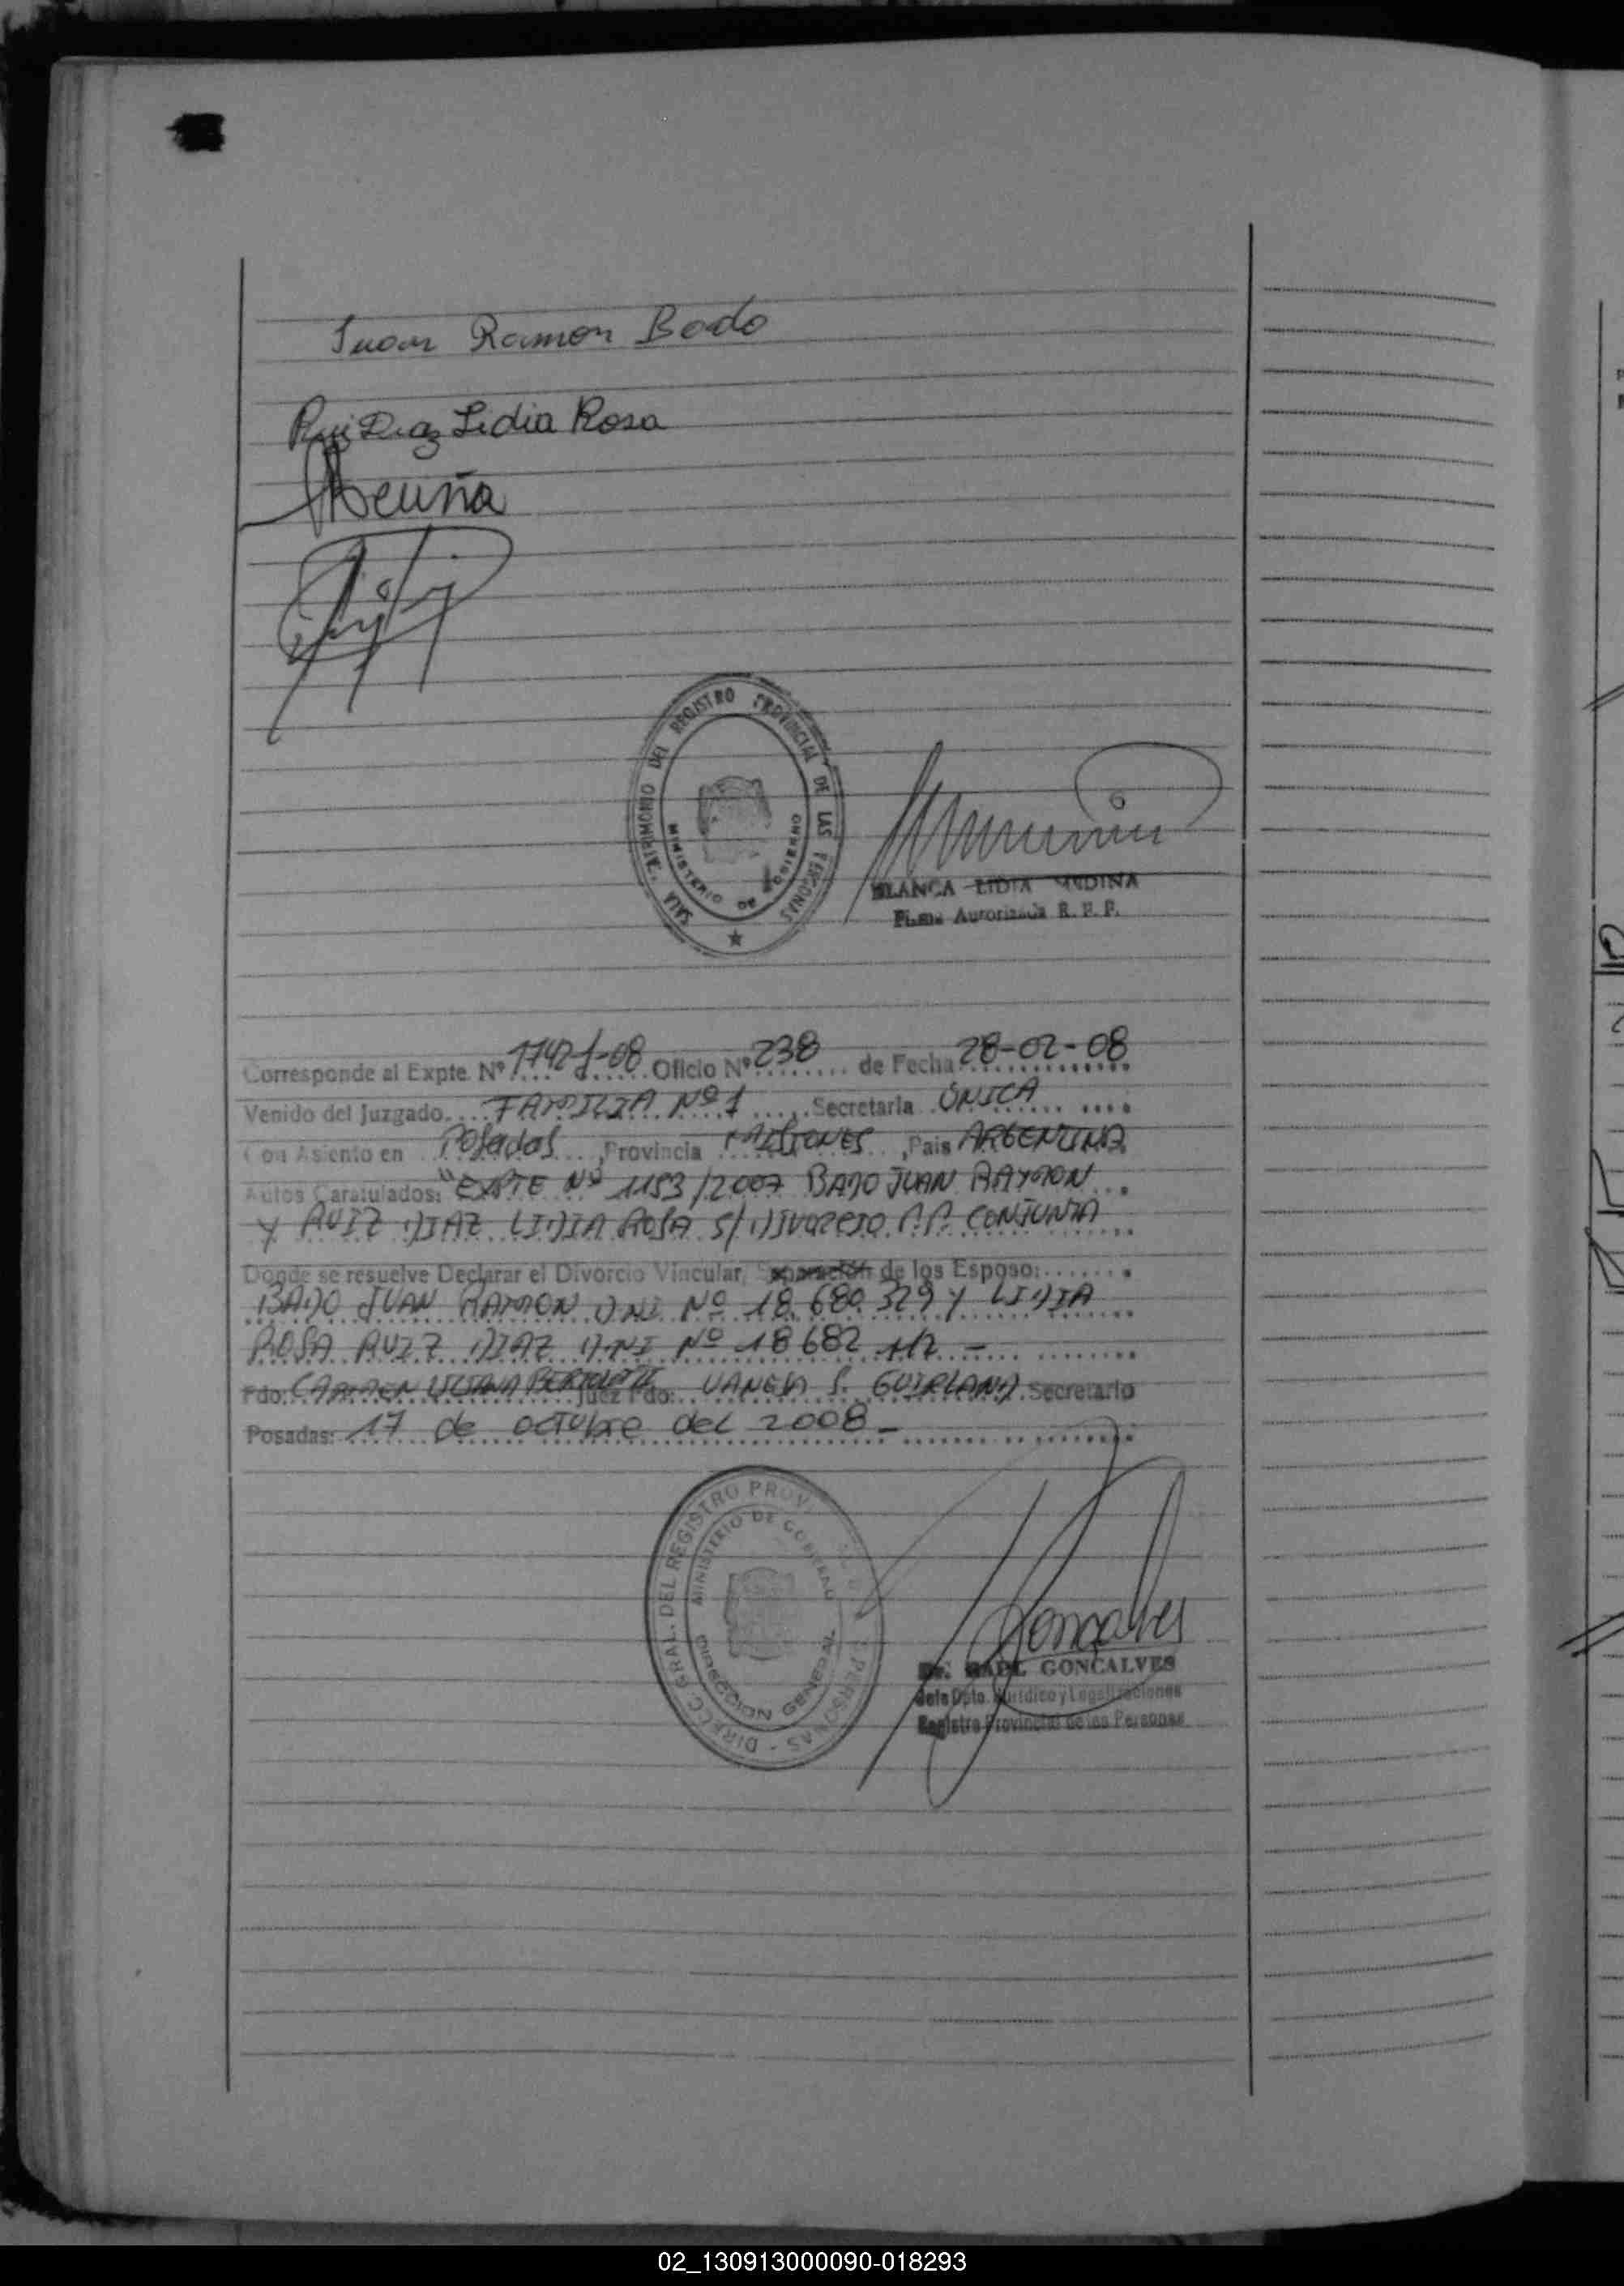 Juan Ramon Bado
Ruiz Diaz Lidia Rosa
Acuña
SALA MATRIMONIO DEL REGISTRO PROVINCIAL DE LAS PERSONAS
MINISTERIO DE GOBIERNO
BLANCA LIDIA MEDINA
Firma Autorizada R. P. P.
Corresponde al Expte. Nº 1742 -08 Oficio Nº 238 de Fecha 28-02-08
Venido del Juzgado FAMILIA Nº 1 Secretaria ÚNICA
Con Asiento en Posadas, Provincia MISIONES, Pais ARGENTINA
Autos Caratulados: "EXPTE Nº 1153/2007 BADO JUAN RAMON
Y RUIZ DIAZ LIDIA ROSA S/ DIVORCIO P.P. CONJUNTA
Donde se resuelve Declarar el Divorcio Vincular, Separación de los Esposo:
BADO JUAN RAMON DNI Nº 18.680.329 Y LIDIA
ROSA RUIZ DIAZ DNI Nº 18682 117 -
Fdo: CARMEN LILIANA Juez Fdo: VANESA S. GUIRLAND Secretario
Posadas: 17 de octubre del 2008-
DIRECC. GRAL. DEL REGISTRO PROV. PERSONAS -
MINISTERIO DE GOBIERNO
DIRECCION GENERAL
Goncalves
Dr. RAUL GONCALVES
Jefe Dpto. Jurídico y Legalizaciones
Registro Provincial de las Personas
02_130913000090-018293